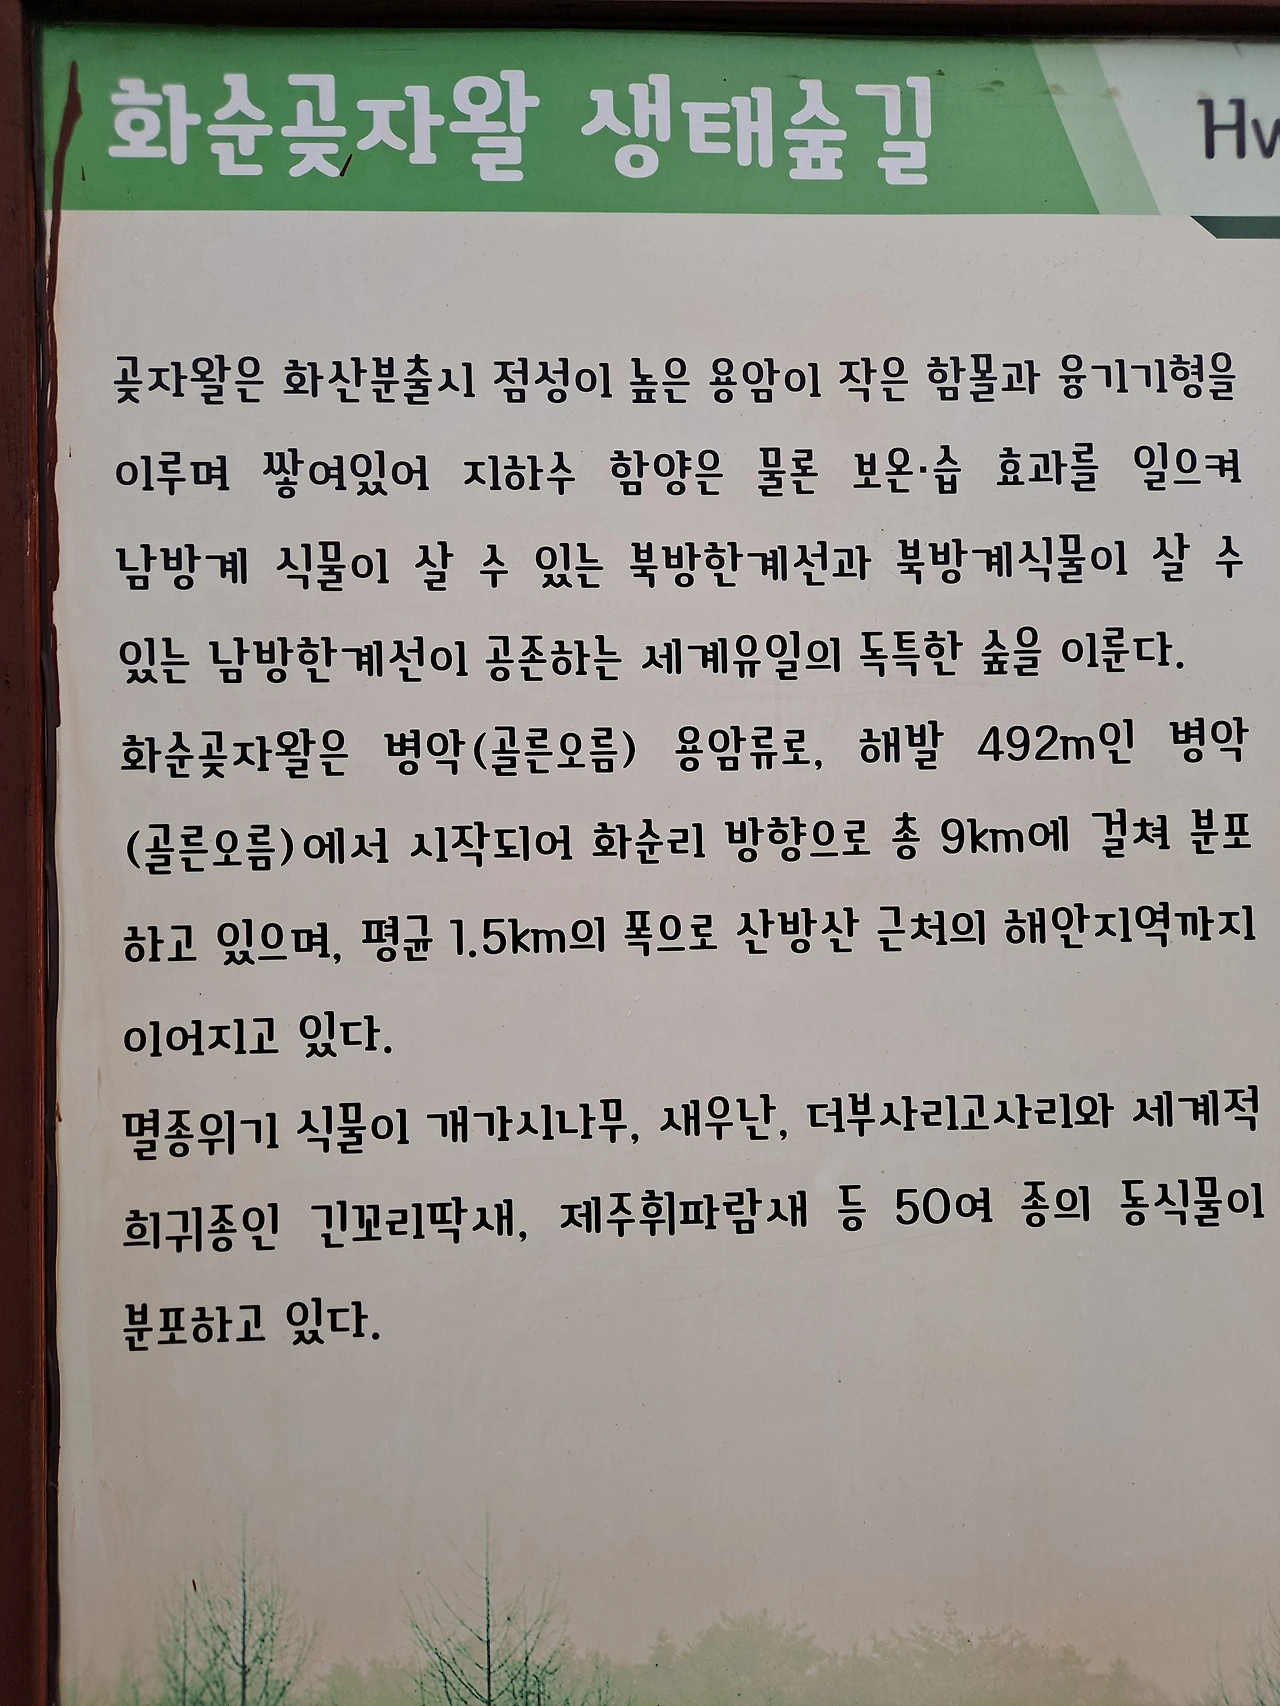 화순곶자왈 생태숲길
Hw
곶자왈은 화산분출시 점성이 높은 용암이 작은 함몰과 융기기형을
이루며 쌓여있어 지하수 함양은 물론 보온·습 효과를 일으켜
남방계 식물이 살 수 있는 북방한계선과 북방계식물이 살 수
있는 남방한계선이 공존하는 세계유일의 독특한 숲을 이룬다.
화순곶자왈은 병악(골른오름) 용암류로, 해발 492m인 병악
(골른오름)에서 시작되어 화순리 방향으로 총 9km에 걸쳐 분포
하고 있으며, 평균 1.5km의 폭으로 산방산 근처의 해안지역까지
이어지고 있다.
멸종위기 식물이 개가시나무, 새우난, 더부사리고사리와 세계적
희귀종인 긴꼬리딱새, 제주휘파람새 등 50여 종의 동식물이
분포하고 있다.